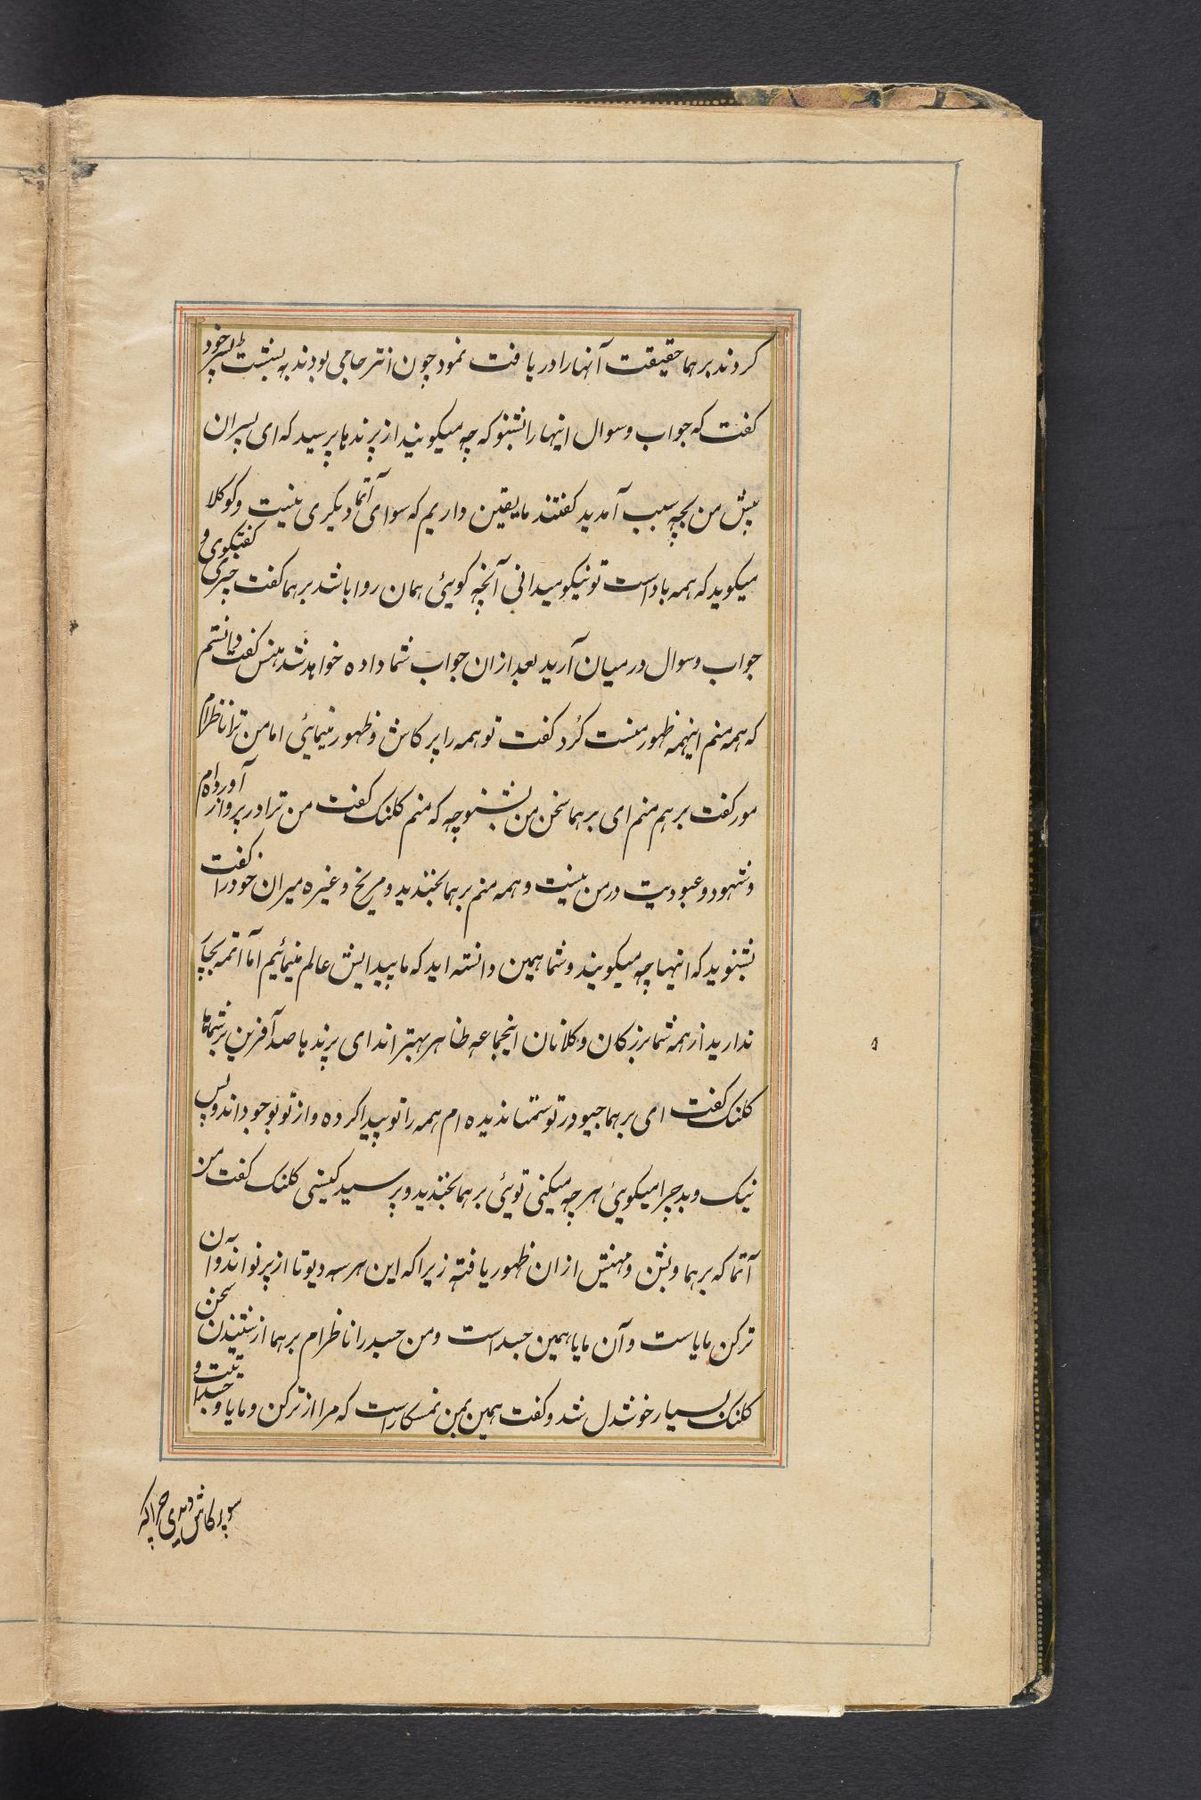 کردند برهما حقیقت آنها را دریافت نمود چون انترجامی بودند به بشست پسر خود
گفت که جواب و سوال اینها را بشنو که چه میگویند از پرندها پرسید که ای پسران
پیش من بچه سبب آمدید گفتند ما یقین داریم که سوای آتما دیگری نیست و کوکلا
میگوید که همه باد است تو نیکو میدانی آنچه گوئی همان روا باشد برهما گفت چیزی گفتگوی و
جواب و سوال در میان آرید بعد ازان جواب شما داده خواهد شد هنس گفت دانستم
که همه منم اینهمه ظهور منست گرد گفت تو همه را پرکاش و ظهور مینمائی اما من ترا ناظرام
مور گفت برهم منم ای برهما سخن من بشنو چه که منم کلنک گفت من ترا در پرواز آورده ام
و شهود و عبودیت در من نیست و همه منم برهما بخندید و مریخ و غیره میران خود را گفت
بشنوید که اینها چه میگویند و شما همین دانسته اید که ما پیدایش عالم مینمائیم اما آتمه بچار
ندارید از همه شما بزرگان و کلانان اینجماعه ظاهر بهتر اند ای پرندها صد آفرین بر شماها
کلنک گفت ای برهماجیو در تو ستمتا ندیده ام همه را تو پیدا کرده و از تو بوجود اند و پس
نیک و بد چرا میگوئی هرچه میکنی توئی برهما بخندید و پرسید کیستی کلنک گفت من
آتما که برهما و بشن و مهیش ازان ظهور یافته زیرا که این هر سه دیوتا از پرنو اند و آن
ترگن مایاست و آن مایا همین جسد است و من جسد را ناظرام برهما از شنیدن سخن
کلنک بسیار خوشدل شد و گفت همین بمن نمسکار است که مرا از ترگن و مایا و جسد
سوپرکاش دیدی چرا که